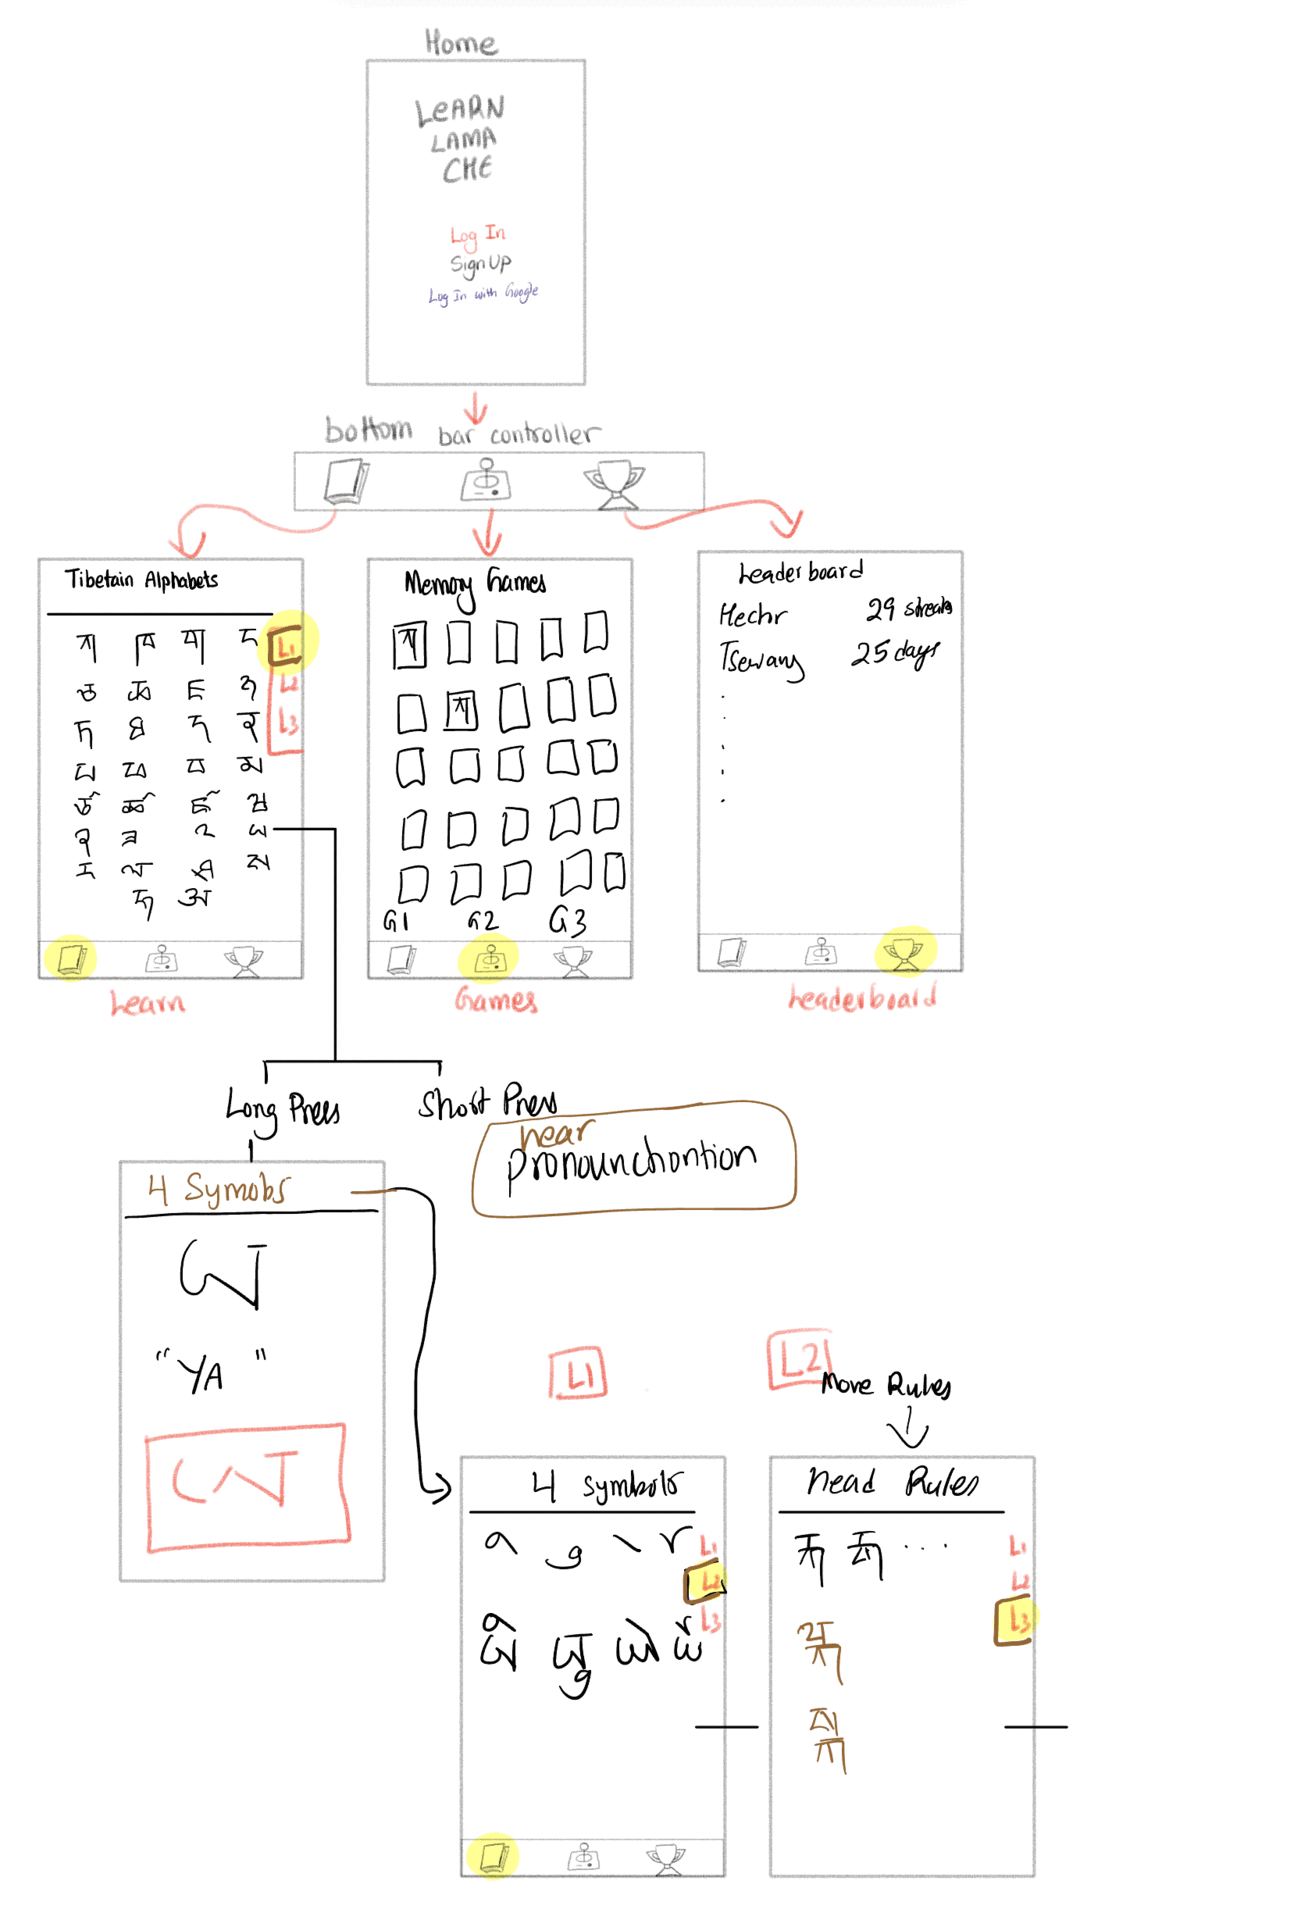 Home
LEARN
LAMA
CHE
Log In
Sign Up
Log In with Google
bottom bar controller
Tibetain Alphabets
ཀ ཁ ག ང
ཅ ཆ ཇ ཉ
ཏ ཐ ད ན
པ ཕ བ མ
ཙ ཚ ཛ ཝ
ཞ ཟ འ ཡ
ར ལ ཤ ས
ཧ ཨ
L1
L2
L3
Learn
Memory Games
ཀ
ཀ
G1 G2 G3
Games
Leaderboard
Hechr 29 streaks
Tsewang 25 days
Leaderboard
Long Press
Short Press
hear
pronounchontion
4 Symobs
ཡ
"YA"
ཡ
L1
L2
More Rules
4 Symbols
ི ུ ེ ོ
ཡི ཡུ ཡེ ཡོ
L1
L2
L3
head Rules
...
L1
L2
L3